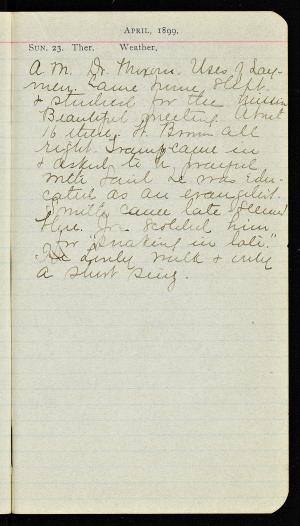 APRIL, 1899.
SUN. 23. Ther. Weather,
A.M. Dr. Uses of Lay-
men. Came home Slept
& studied for the
Beautiful meeting About
16 there. H. Brown all
right. Tramp came in
& asked to be prayed
with said he was edu-
cated as an evangelist.
Smith came late
Jr. scolded him
for "sneaking in late."
lovely walk & only
a short sing.